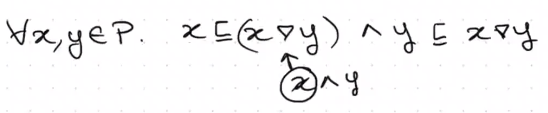 ∀x,y∈P. x⊑(x▽y) ∧ y ⊑ x▽y
↑
x∧y